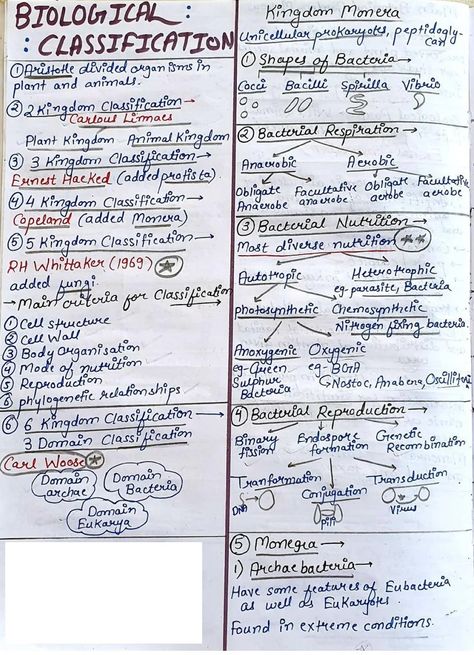 BIOLOGICAL :
: CLASSIFICATION
① Aristotle divided organisms in
plant and animals.
② 2 Kingdom Classification →
Carlous Linnaes
Plant Kingdom Animal Kingdom
③ 3 Kingdom Classification →
Ernest Hacked (added protista).
④ 4 Kingdom Classification →
Copeland (added Monera)
⑤ 5 Kingdom Classification →
RH Whittaker (1969)
added fungi.
→ Main criteria for Classification
① Cell structure
② Cell Wall
③ Body Organisation
④ Mode of nutrition
⑤ Reproduction
⑥ phylogenetic relationships
⑥ 6 Kingdom Classification →
3 Domain Classification
Carl Woose
Domain archae
Domain Bacteria
Domain Eukarya
Kingdom Monera
Unicellular prokaryotes, peptidogly-
can
① Shapes of Bacteria →
Cocci Bacilli Spirilla Vibrio
② Bacterial Respiration →
Anaerobic Aerobic
Obligate Facultative Obligate Facultative
Anaerobe anaerobe aerobe aerobe
③ Bacterial Nutrition →
Most diverse nutrition
Autotropic Heterotrophic
eg- parasite, Bacteria
Photosynthetic Chemosynthetic
Nitrogen fixing bacteria.
Anoxygenic Oxygenic
eg- Green eg- BGA
Sulphur Nostoc, Anabena, Oscillitoria
Bacteria
④ Bacterial Reproduction →
Binary Endospore Genetic
fission formation Recombination
Tranformation Conjugation Transduction
DNA Pili Virus
⑤ Monegra →
1) Archaebacteria →
Have some features of Eubacteria
as well as Eukaryotes.
Found in extreme conditions.